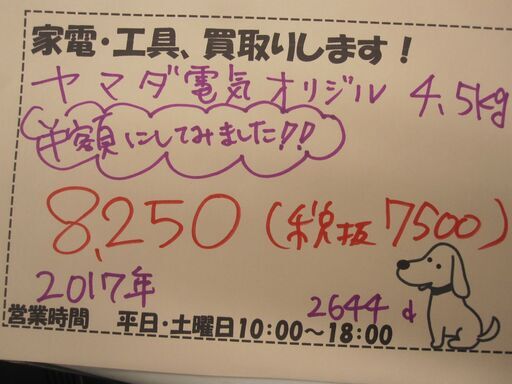 家電・工具、買取りします！
ヤマダ電気オリジル 4.5kg
半額にしてみました!!
8,250（税抜7500）
2017年
2644 d
営業時間 平日・土曜日10:00～18:00